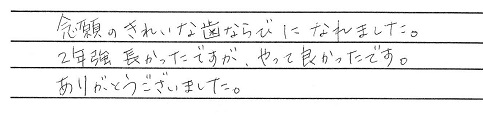 念願のきれいな歯ならびになれました。
2年強 長かったですが、やって良かったです。
ありがとうございました。